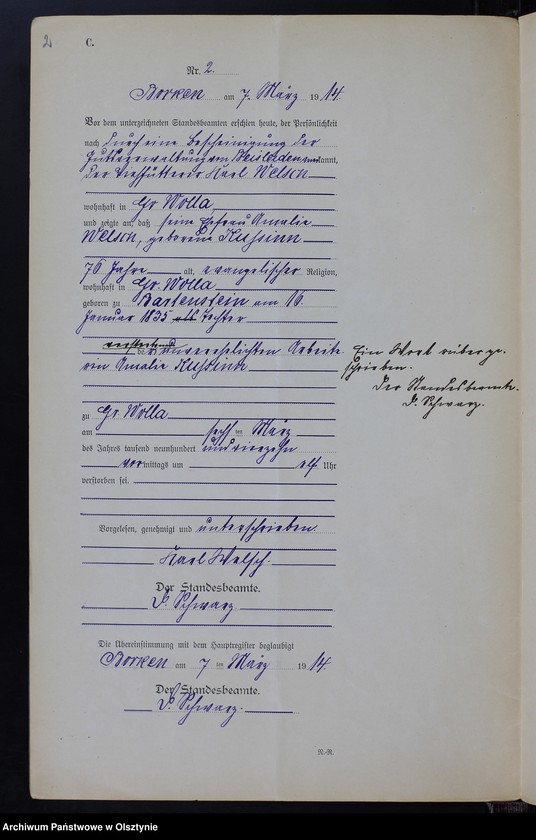 2
C.
Nr. 2.
Borken am 7. März 1914.
Vor dem unterzeichneten Standesbeamten erschien heute, der Persönlichkeit
nach durch eine Bescheinigung der
Gutsverwaltung von kannt,
der Karl Welsch
wohnhaft in Gr Wolla
und zeigte an, daß seine Ehefrau Amalie
Welsch, geborene Kussinn
76 Jahre alt, evangelischer Religion,
wohnhaft in Gr. Wolla
geboren zu Bartenstein am 16.
Januar 1835 Tochter
der unverehelichten Arbeite-
rin Amalie Kussinn
zu Gr. Wolla
am sechs ten März
des Jahres tausend neunhundert und vierzehn
vormittags um elf Uhr
verstorben sei.
Vorgelesen, genehmigt und unterschrieben.
Karl Welsch.
Der Standesbeamte.
Schwarz
Ein Wort überge-
schrieben.
Der Standesbeamte.
Schwarz.
Die Übereinstimmung mit dem Hauptregister beglaubigt
Borken am 7 ten März 1914.
Der Standesbeamte.
Schwarz.
R.-R.
Archiwum Państwowe w Olsztynie